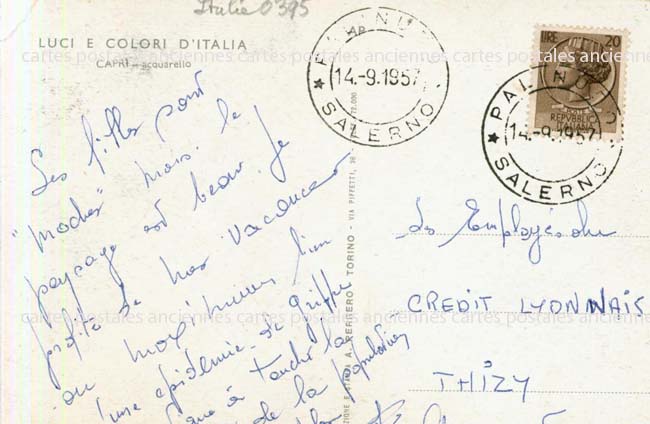 Italie 0395
LUCI E COLORI D'ITALIA
CAPRI - acquarello
Les filles sont
"moches" mais le
paysage est beau. Je
profite de mes vacances
au maximum bien
d'une épidémie de grippe
à toucher la
de la population
VIA PIFFETTI, 38
A. FERRERO TORINO
PALINURO
14.-9.1957
SALERNO
LIRE 20
REPVBBLICA
ITALIANA
PALINURO
14.-9.1957
SALERNO
Les Employés du
CREDIT LYONNAIS
THIZY
cartes postales anciennes cartes postales anciennes cartes postales anciennes
cartes postales anciennes cartes postales anciennes cartes postales anciennes